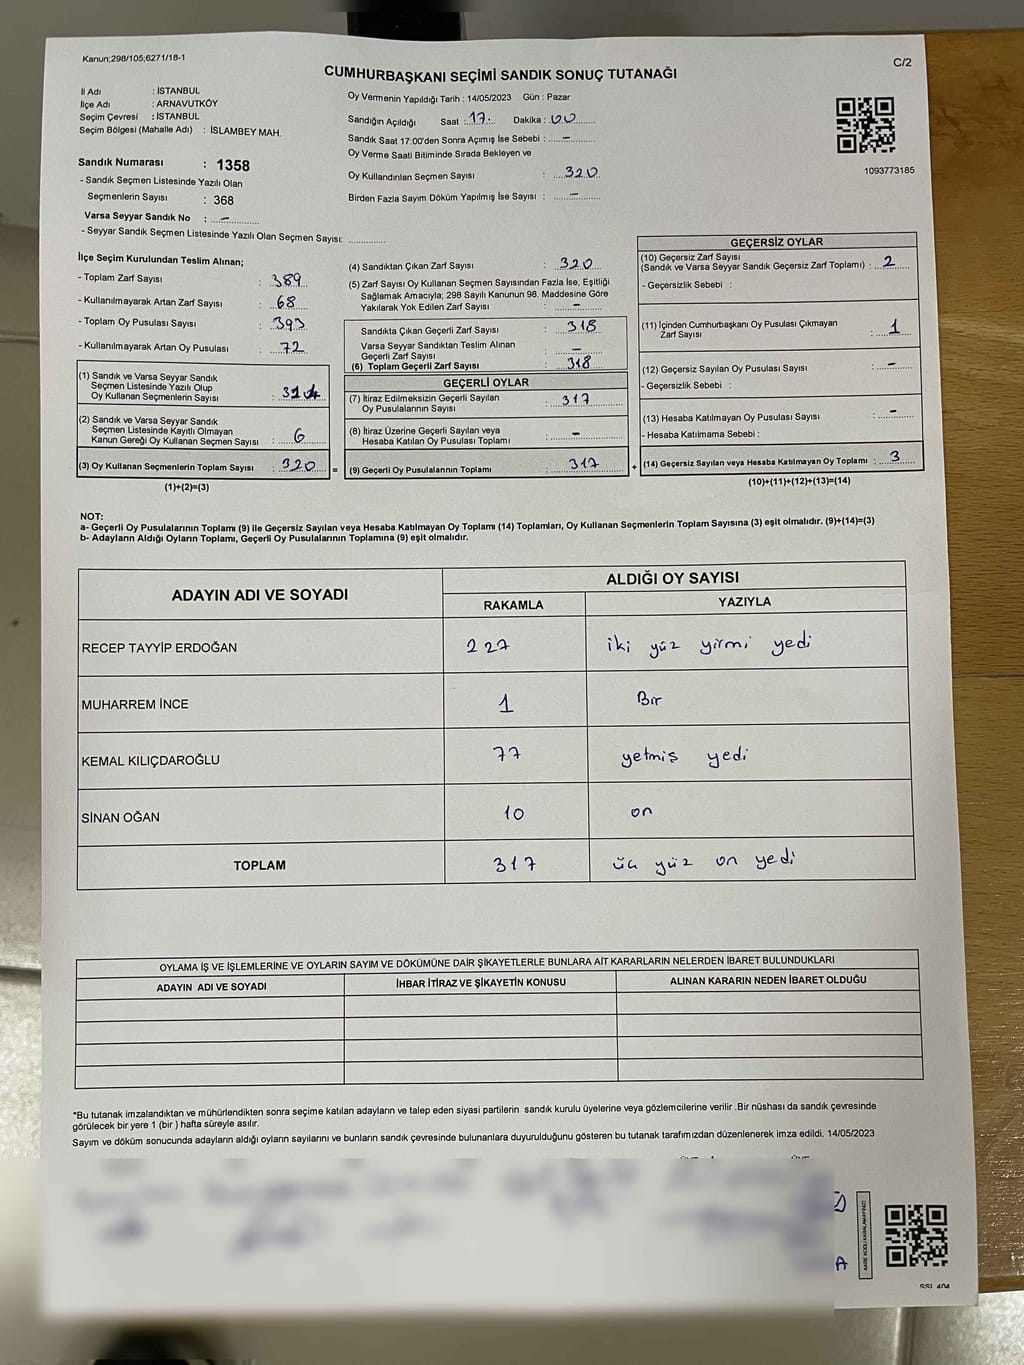 Kanun;298/105;6271/18-1
C/2
CUMHURBAŞKANI SEÇİMİ SANDIK SONUÇ TUTANAĞI
İl Adı : İSTANBUL
İlçe Adı : ARNAVUTKÖY
Seçim Çevresi : İSTANBUL
Seçim Bölgesi (Mahalle Adı) : İSLAMBEY MAH.
Sandık Numarası : 1358
- Sandık Seçmen Listesinde Yazılı Olan
Seçmenlerin Sayısı : 368
Varsa Seyyar Sandık No : -
- Seyyar Sandık Seçmen Listesinde Yazılı Olan Seçmen Sayısı: ..............
Oy Vermenin Yapıldığı Tarih : 14/05/2023 Gün : Pazar
Sandığın Açıldığı Saat : 17. Dakika : 00
Sandık Saat 17:00'den Sonra Açımış İse Sebebi : -
Oy Verme Saati Bitiminde Sırada Bekleyen ve
Oy Kullandırılan Seçmen Sayısı : 320
Birden Fazla Sayım Döküm Yapılmış İse Sayısı : -
1093773185
İlçe Seçim Kurulundan Teslim Alınan;
- Toplam Zarf Sayısı : 389
- Kullanılmayarak Artan Zarf Sayısı : 68
- Toplam Oy Pusulası Sayısı : 393
- Kullanılmayarak Artan Oy Pusulası : 72
(1) Sandık ve Varsa Seyyar Sandık
Seçmen Listesinde Yazılı Olup
Oy Kullanan Seçmenlerin Sayısı : 314
(2) Sandık ve Varsa Seyyar Sandık
Seçmen Listesinde Kayıtlı Olmayan
Kanun Gereği Oy Kullanan Seçmen Sayısı : 6
(3) Oy Kullanan Seçmenlerin Toplam Sayısı : 320 =
(1)+(2)=(3)
(4) Sandıktan Çıkan Zarf Sayısı : 320
(5) Zarf Sayısı Oy Kullanan Seçmen Sayısından Fazla İse, Eşitliği
Sağlamak Amacıyla; 298 Sayılı Kanunun 98. Maddesine Göre
Yakılarak Yok Edilen Zarf Sayısı : -
Sandıkta Çıkan Geçerli Zarf Sayısı : 318
Varsa Seyyar Sandıktan Teslim Alınan
Geçerli Zarf Sayısı : -
(6) Toplam Geçerli Zarf Sayısı : 318
GEÇERLİ OYLAR
(7) İtiraz Edilmeksizin Geçerli Sayılan
Oy Pusulalarının Sayısı : 317
(8) İtiraz Üzerine Geçerli Sayılan veya
Hesaba Katılan Oy Pusulası Toplamı : -
(9) Geçerli Oy Pusulalarının Toplamı : 317 +
GEÇERSİZ OYLAR
(10) Geçersiz Zarf Sayısı
(Sandık ve Varsa Seyyar Sandık Geçersiz Zarf Toplamı) : 2
- Geçersizlik Sebebi :
(11) İçinden Cumhurbaşkanı Oy Pusulası Çıkmayan
Zarf Sayısı : 1
(12) Geçersiz Sayılan Oy Pusulası Sayısı : -
- Geçersizlik Sebebi :
(13) Hesaba Katılmayan Oy Pusulası Sayısı : -
- Hesaba Katılmama Sebebi :
(14) Geçersiz Sayılan veya Hesaba Katılmayan Oy Toplamı : 3
(10)+(11)+(12)+(13)=(14)
NOT:
a- Geçerli Oy Pusulalarının Toplamı (9) ile Geçersiz Sayılan veya Hesaba Katılmayan Oy Toplamı (14) Toplamları, Oy Kullanan Seçmenlerin Toplam Sayısına (3) eşit olmalıdır. (9)+(14)=(3)
b- Adayların Aldığı Oyların Toplamı, Geçerli Oy Pusulalarının Toplamına (9) eşit olmalıdır.
ADAYIN ADI VE SOYADI
ALDIĞI OY SAYISI
RAKAMLA YAZIYLA
RECEP TAYYİP ERDOĞAN 227 iki yüz yirmi yedi
MUHARREM İNCE 1 Bir
KEMAL KILIÇDAROĞLU 77 yetmiş yedi
SİNAN OĞAN 10 on
TOPLAM 317 üç yüz on yedi
OYLAMA İŞ VE İŞLEMLERİNE VE OYLARIN SAYIM VE DÖKÜMÜNE DAİR ŞİKAYETLERLE BUNLARA AİT KARARLARIN NELERDEN İBARET BULUNDUKLARI
ADAYIN ADI VE SOYADI İHBAR İTİRAZ VE ŞİKAYETİN KONUSU ALINAN KARARIN NEDEN İBARET OLDUĞU
*Bu tutanak imzalandıktan ve mühürlendikten sonra seçime katılan adayların ve talep eden siyasi partilerin sandık kurulu üyelerine veya gözlemcilerine verilir .Bir nüshası da sandık çevresinde
görülecek bir yere 1 (bir ) hafta süreyle asılır.
Sayım ve döküm sonucunda adayların aldığı oyların sayılarını ve bunların sandık çevresinde bulunanlara duyurulduğunu gösteren bu tutanak tarafımızdan düzenlenerek imza edildi. 14/05/2023
KARE KODU KARALAMAYINIZ!